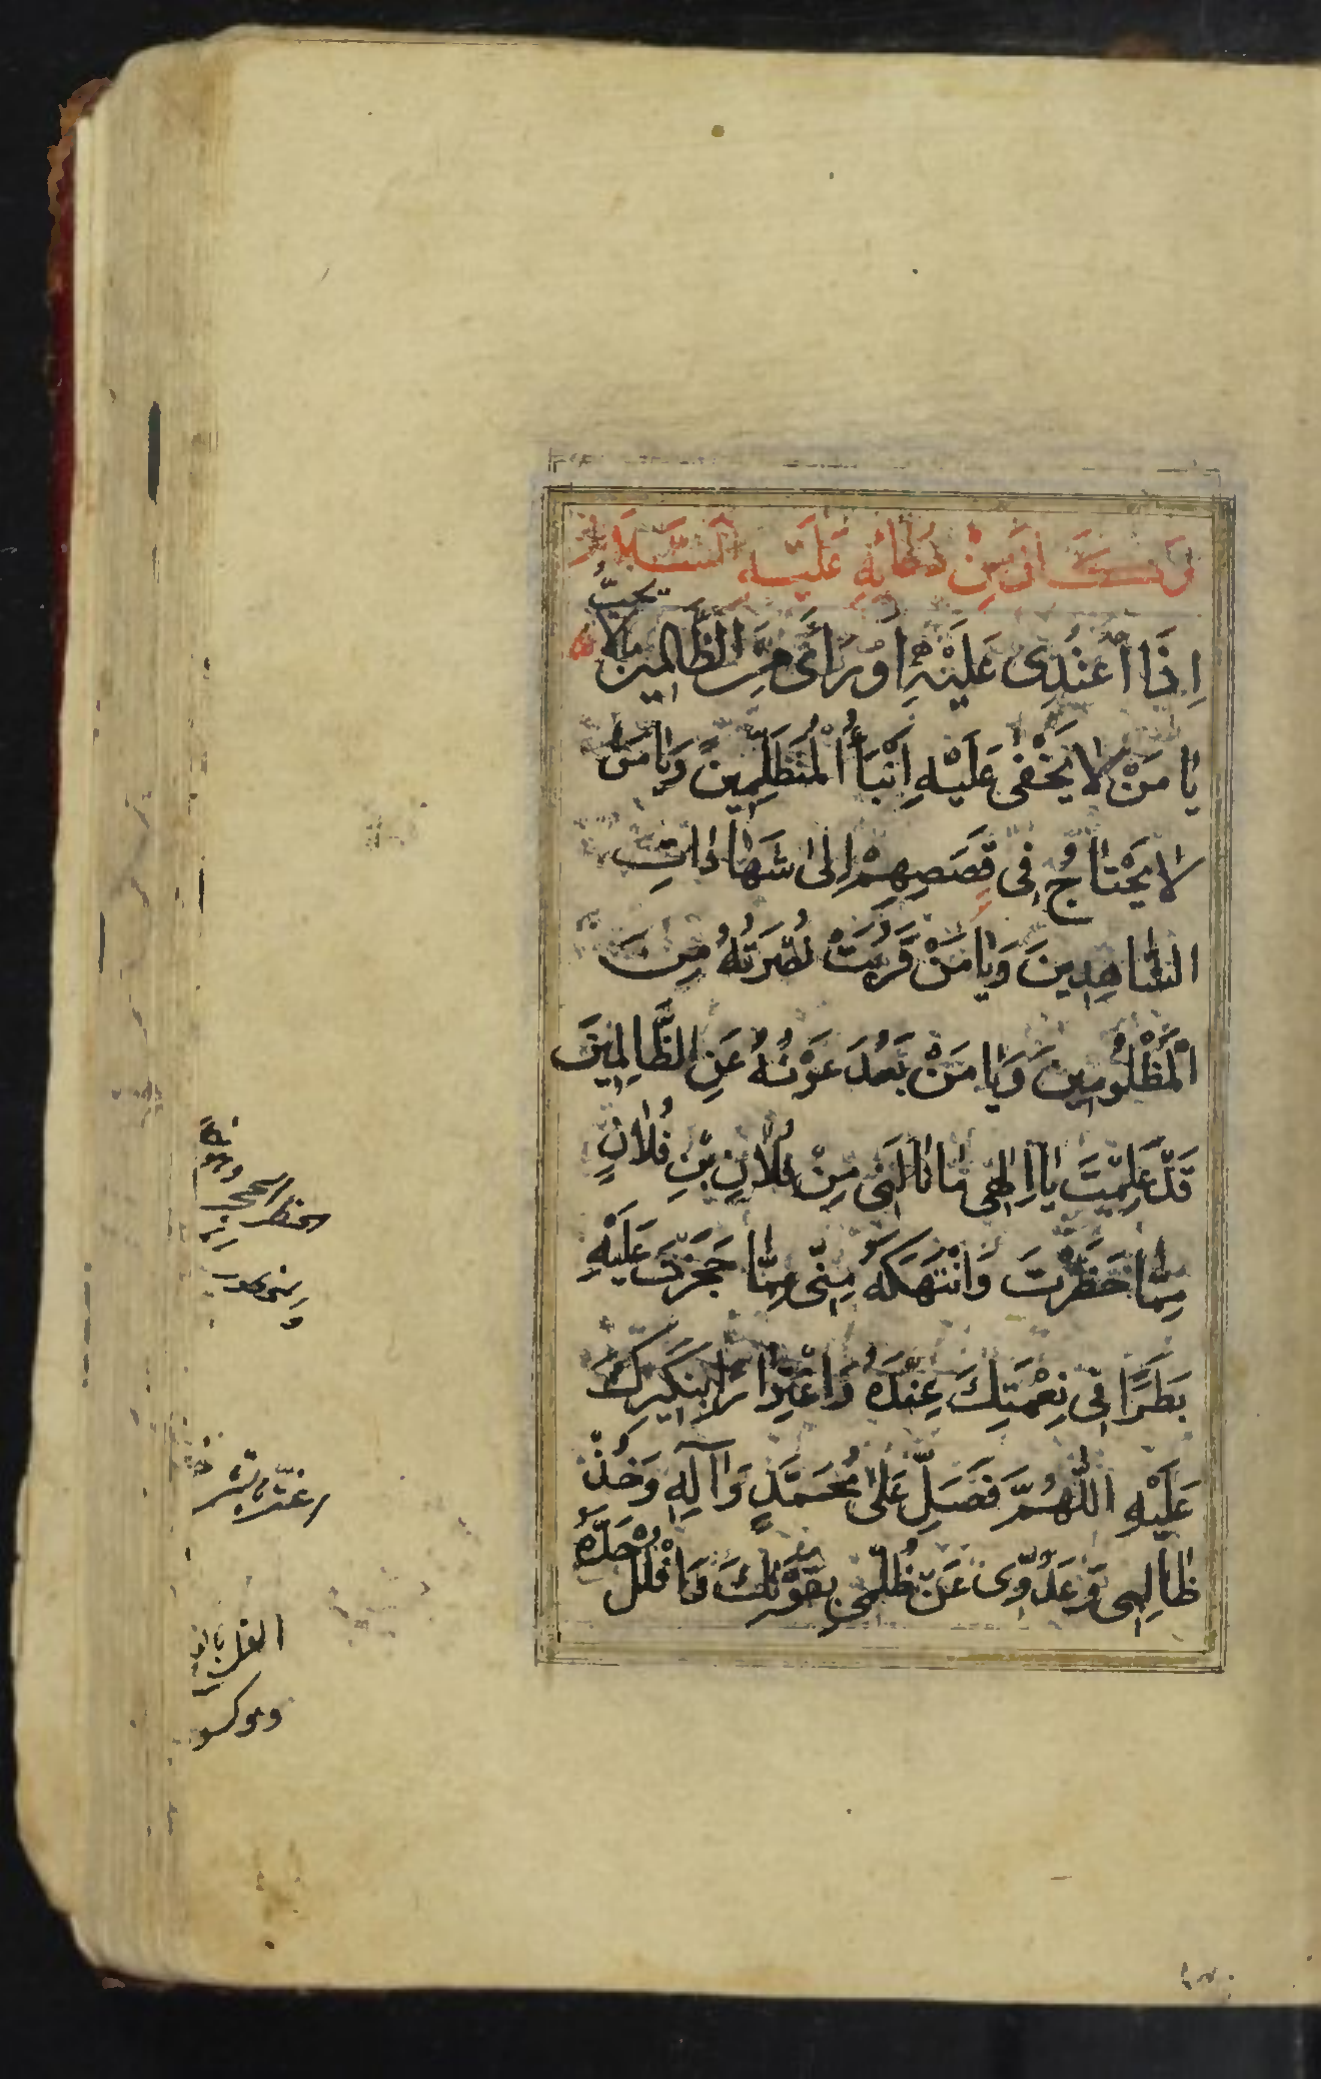 وَكَانَ مِنْ دُعَائِهِ عَلَيْهِ السَّلَامُ
اِذَا اعْتُدِىَ عَلَيْهِ اَوْ رَاٰى مِنَ الظَّالِمِينَ مَا لَا يُحِبُّ
يَا مَنْ لَا يَخْفٰى عَلَيْهِ اَنْبَاءُ الْمُتَظَلِّمِينَ وَيَا مَنْ
لَا يَحْتَاجُ فِى قَصَصِهِمْ اِلٰى شَهَادَاتِ
الشَّاهِدِينَ وَيَا مَنْ قَرُبَتْ نُصْرَتُهُ مِنَ
الْمَظْلُومِينَ وَيَا مَنْ بَعُدَ عَوْنُهُ عَنِ الظَّالِمِينَ
قَدْ عَلِمْتَ يَا اِلٰهِى مَا نَالَنِى مِنْ فُلَانِ بْنِ فُلَانٍ
مِمَّا حَظَرْتَ وَانْتَهَكَهُ مِنِّى مِمَّا حَجَزْتَ عَلَيْهِ
بَطَرًا فِى نِعْمَتِكَ عِنْدَهُ وَاغْتِرَارًا بِنَكِيرِكَ
عَلَيْهِ اللّٰهُمَّ فَصَلِّ عَلٰى مُحَمَّدٍ وَآلِهِ وَخُذْ
ظَالِمِى وَعَدُوِّى عَنْ ظُلْمِى بِقُوَّتِكَ وَافْلُلْ حَدَّهُ